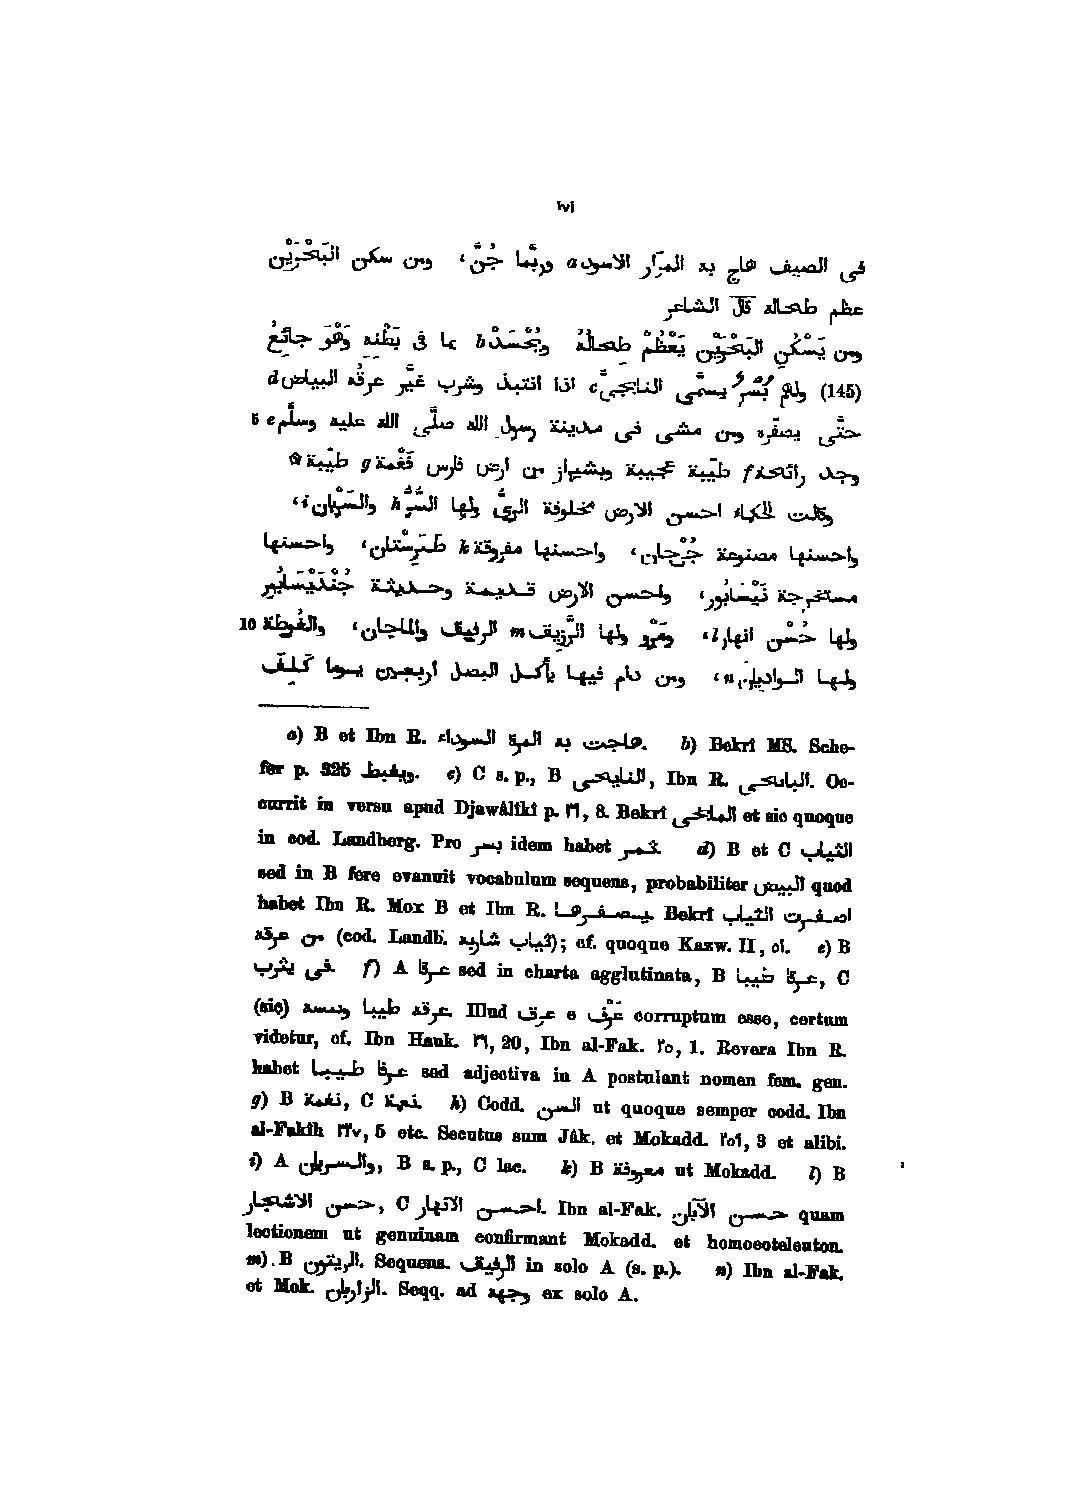 ١٧١
فى الصيف هاج به المرّار الاسود a وربّما جُنَّ، ومن سكن البَحْرَيْن
عظم طحاله قال الشاعر
ومن يَسْكُنِ البَحْرَيْنِ يَعْظُمْ طحالُهُ وَيُحْسَدْ b بما فى بَطْنِهِ وَهْوَ جائِعُ
(145) ولهم بُسْرٌ يسمَّى النابجىَّ c اذا انتبذ وشرب غيَّر عرقُه البياض d
حتَّى يصفّره ومن مشى فى مدينة رسول الله صلَّى الله عليه وسلَّم e 5
وجد رائحة f طيّبة عجيبة وبشيراز من ارض فارس فَغْمة g طيّبة ۞
وقالت الحكماء احسن الارض مخلوفة الرىُّ ولها السُّرُّ h والسَّرْبان i،
واحسنها مصنوعة جُرْجان، واحسنها مفروقة k طَبَرِسْتان، واحسنها
مستخرجة نَيْسَابُور، واحسن الارض قديمة وحديثة جُنْدَيْسَابُور
ولها حُسْن انهار l، ومَرْو ولها الرَّزيق m الرفيف والماجان، والغُوطة 10
ولها الواديان n، ومن دام فيها بأكل البصل اربعين يوما كلف
a) B et Ibn R. هاجت به المرة السوداء. b) Bekrî MS. Sche-
fer p. 325 ويغبط. c) C s. p., B النايحى, Ibn R. . Oc-
currit in versu apud Djawâlîkî p. ٢٦, 8. Bekrî et sic quoque
in cod. Landberg. Pro بسر idem habet خمر d) B et C الثياب
sed in B fere evanuit vocabulum sequens, probabiliter البيض quod
habet Ibn R. Mox B et Ibn R. يصفرها. Bekrî اصفرت الثياب
من عرقه (cod. Landb. ثياب شاربه); cf. quoque Kazw. II, ٥١. e) B
فى يثرب f) A عرقا sed in charta agglutinata, B عرقا طيبا, C
(sic) عرقه طيبا ونسمه Illud عرق e عَرْف corruptum esse, certum
videtur, cf. Ibn Hauk. ٢٦, 20, Ibn al-Fak. ٢٥, 1. Revera Ibn R.
habet عرفا طيبا sed adjectiva in A postulant nomen fem. gen.
g) B نغمة, C . h) Codd. السن ut quoque semper codd. Ibn
al-Fakîh ٢٢٧, 5 etc. Secutus sum Jâk. et Mokadd. ٢٥٦, 3 et alibi.
i) A والسريان, B s. p., C lac. k) B معروفة ut Mokadd. l) B
حسن الاشجار, C احسن الانهار. Ibn al-Fak. حسن الآبان quam
lectionem ut genuinam confirmant Mokadd. et homoeoteleuton.
m) B الزيتون. Sequens الرفيف in solo A (s. p.). n) Ibn al-Fak.
et Mok. الزاربان. Seqq. ad وجهه ex solo A.